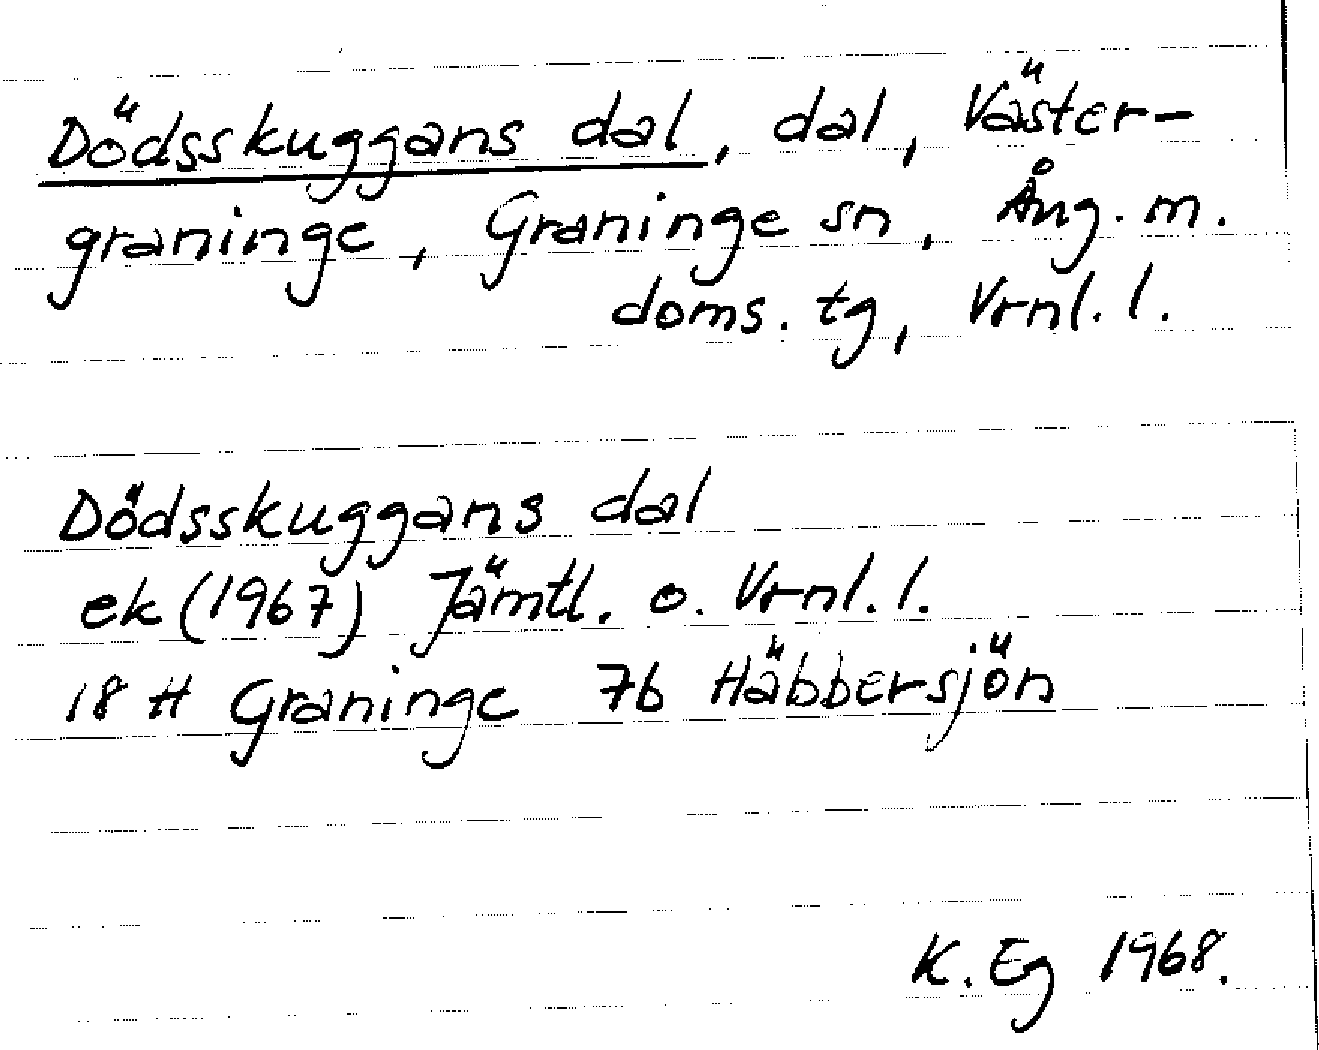 Dödsskuggans dal, dal, Väster-
graninge, Graninge sn, Ång. m.
doms. tg, Vrnl. l.
Dödsskuggans dal
ek (1967) Jämtl. o. Vrnl. l.
18 H Graninge 7b Häbbersjön
K. Eg 1968.